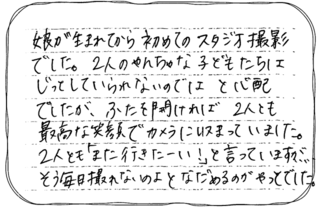 娘が生まれてから初めてのスタジオ撮影
でした。2人のやんちゃな子どもたちは
じっとしていられないのでは と心配
でしたが、ふたを開ければ 2人とも
最高な笑顔でカメラに収まっていました。
2人とも「また行きたーい!」と言っていますが…
そう毎日撮れないのよ となだめるのがやっとでした。